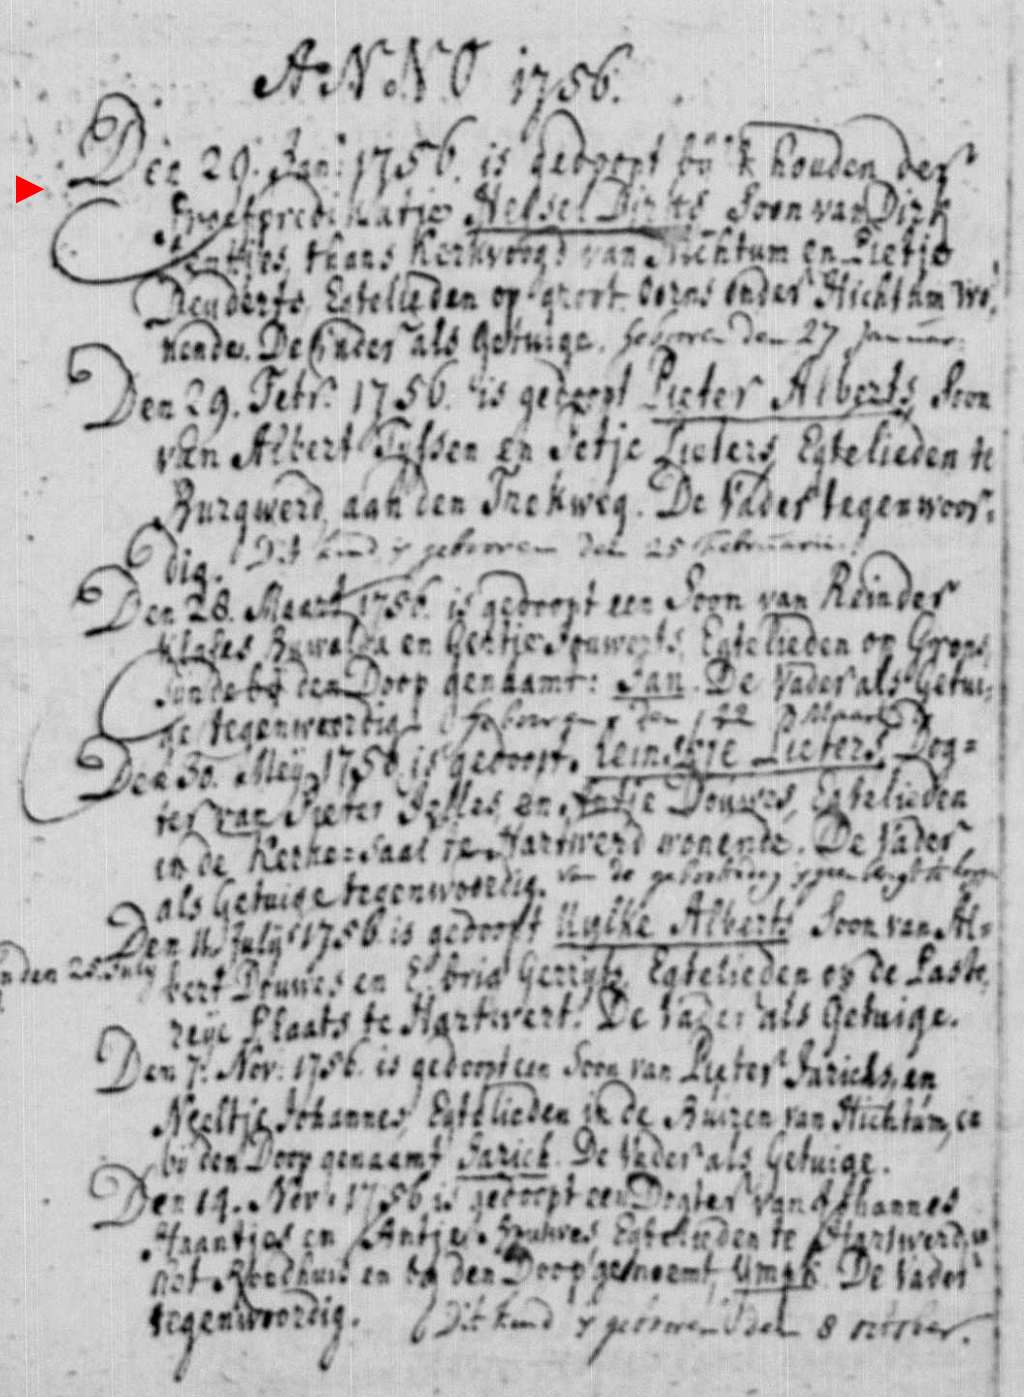 ANNO 1756.
Den 29. Jan: 1756. is gedoopt bij 't houden der
Proefpredikatie Hessel Dirks Soon van Dirk
thans Kerkvoogd van Hichtum en Pietje
Reynderts, Egtelieden op groot onder Hichtum wo,
nende. De Vader als Getuige. geboren den 27 Januar:
Den 29. Febr: 1756. is gedoopt Pieter Alberts Soon
van Albert Tyssen en Jetje Pieters, Egtelieden te
Burgwerd, aan den Trekweg. De Vader tegenwoor=
dig. Dit kind is gebooren den 25 Februarii.
Den 28. Maart 1756. is gedoopt een Soon van Reinder
Klases en Egtelieden op Grons,
den Doop genaamt: Jan. De Vader als Getui=
ge tegenwoordig. gebooren den 22 Maart
Den 30. Meij 1756 is gedoopt Reinskje Pieters, Dog=
ter van Pieter Jelles en Antje Douwes, Egtelieden
in de te Hartwerd wonende. De Vader
als Getuige tegenwoordig. van de geboortedag is geen
Den 11. Julij 1756. is gedoopt Uylke Alberts Soon van Al=
den 25. July
bert Douwes en Gerryts, Egtelieden op de Paste,
reye Plaats te Hartwert. De Vader als Getuige.
Den 7. Nov: 1756. is gedoopt een Soon van Pieter Jarichs, en
Neeltje Johannes, Egtelieden in de Huizen van Hichtum, en
bij den Doop genaamt Jarich. De Vader als Getuige.
Den 14. Nov: 1756 is gedoopt een Dogter van Johannes
Haantjes en Antje Egtelieden te Hartwerd, in
het Roodhuis en bij den Doop genoemt, De Vader
tegenwoordig. Dit kind is gebooren den 8 october.